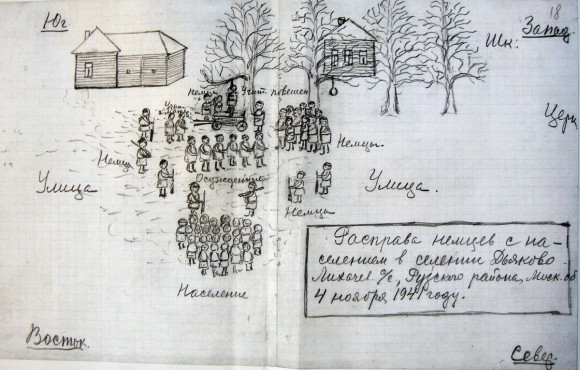 18
Юг
Запад
Шк.
Немцы
Учит. повешен
Церк
Немцы
Немцы.
Осужденные
Улица
Улица.
Немцы
Расправа немцев с на-
селением в селении Дьяково
Лихачев с/с, Рузского района, Моск. об
4 ноября 1941 году.
Население
Восток.
Север.